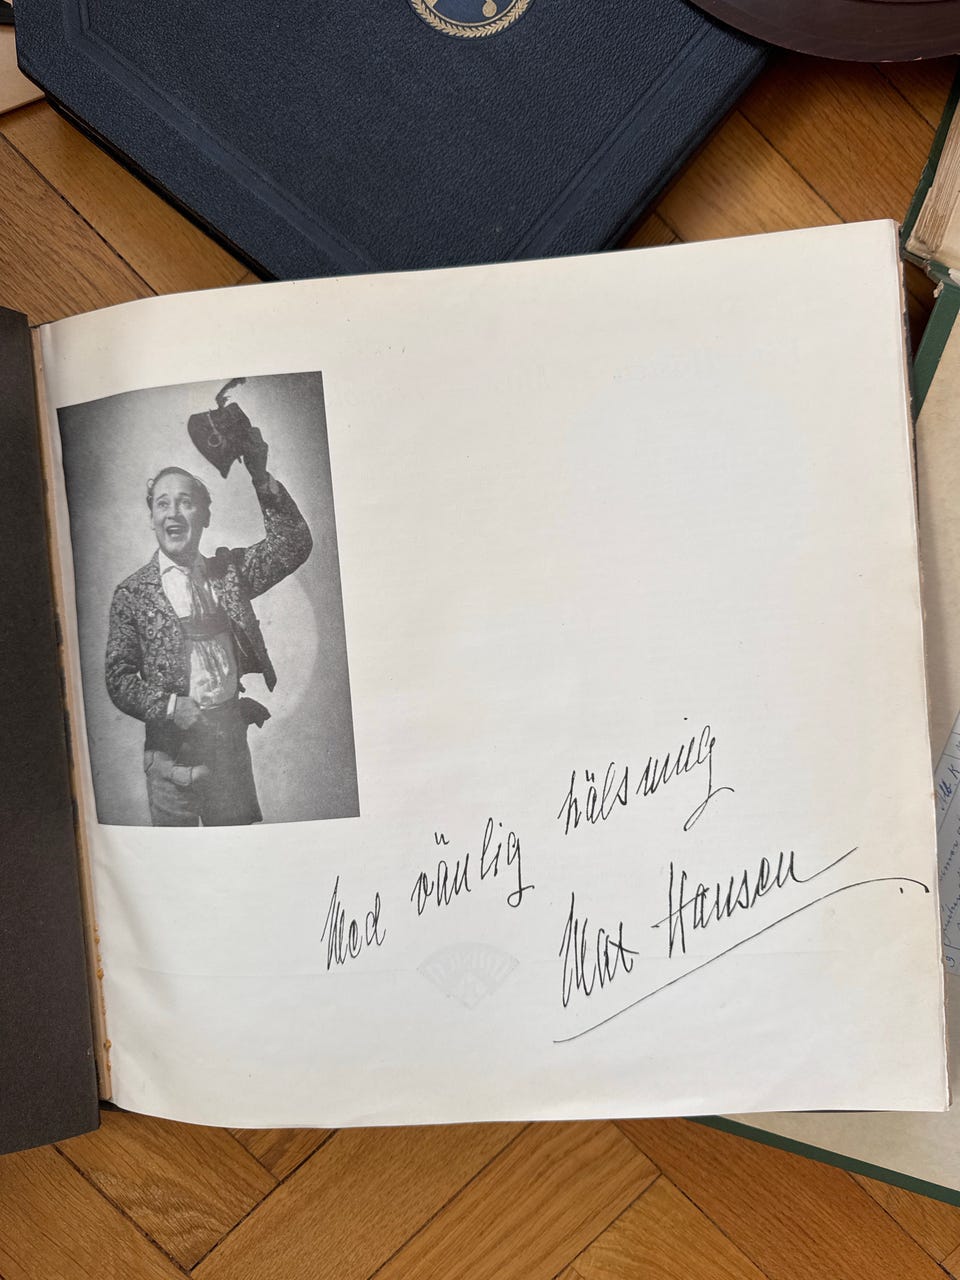 Med vänlig hälsning
Max Hansen